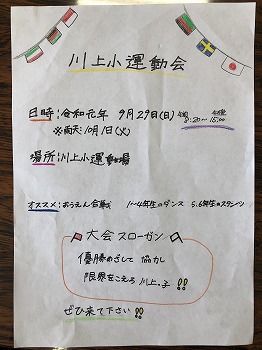 川上小運動会
日時:令和元年 9月29日(日) 午前8:20〜午後15:00
※雨天:10月1日(火)
場所:川上小運動場
オススメ:おうえん合戦 1〜4年生のダンス 5.6年生のスタンツ
大会スローガン
優勝めざして 協力し
限界をこえろ 川上っ子!!
ぜひ来て下さい!!